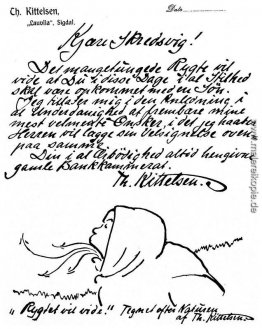 Th. Kittelsen,
"Lauvlia", Sigdal.
Dato
Kjære Skredsvig!
Det mangetungede Rygte vil
vide at Du i disse Dage i al Stilhed
skal være opkommet med en Søn.
Jeg tillater mig i den Anledning i
al Underdanighed at frembære mine
mest velmente Ønsker, i det jeg haaber
Herren vil lægge sin Velsignelse oven
paa samme.
Din i al Ærbødighed altid hengivne
gamle Bankkammerat
Th. Kittelsen.
"Rygtet vil vide." Tegnet efter Naturen
af Th. Kittelsen.
www.malereikopie.de